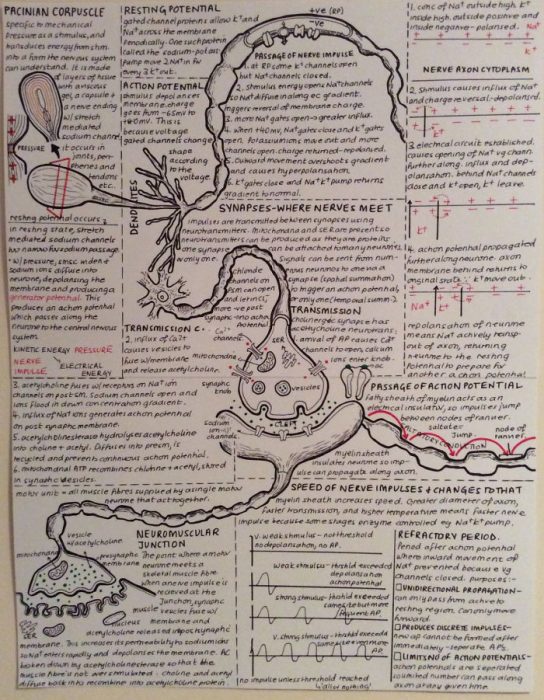 PACINIAN CORPUSCLE
specific to mechanical
pressure as a stimulus, and
transduces energy from stim.
into a form the nervous system
can understand. It is made
layers of tissue
with a viscous
gel, a capsule
a nerve ending
w/ stretch
mediated
sodium channel
it occurs in
joints, peri-
pheries and
tendons
etc.
PRESSURE
resting potential occurs
in resting state, stretch
mediated sodium channels
too narrow for sodium passage.
w/ pressure, smsc widen &
sodium ions diffuse into
neurone, depolarising the
membrane and producing a
generator potential. This
produces an action potential
which passes along the
neurone to the central nervous
system.
KINETIC ENERGY PRESSURE
NERVE IMPULSE ELECTRICAL ENERGY
RESTING POTENTIAL
gated channel proteins allow K+ and
Na+ across the membrane
One such protein
called the sodium-potass.
pump move 2 Na+ in for
every 3 K+ out.
ACTION POTENTIAL
stimulus depolarises
membrane. charge
goes from -65mv to
+40mv. This is
because voltage
gated channels change
shape
according
to the
voltage.
DENDRITES
+ve (RP)
-ve
PASSAGE OF NERVE IMPULSE
1. at RP some K+ channels open
but Na+ channels closed.
2. stimulus energy opens Na+ channels
so Na+ diffuse in along ec gradient.
triggers reversal of membrane charge.
3. more Na+ channels open → greater influx.
4. when +40mv, Na+ gates close and K+ gates
open. Potassium ions move out and more
channels open. charge returned - repolarised.
5. outward movement overshoots gradient
and causes hyperpolarisation.
6. K+ gates close and Na+ K+ pump returns
gradient to normal.
1. conc of Na+ outside high, K+
inside high. outside positive and
inside negative - polarised.
Na+
K+
NERVE AXON CYTOPLASM
2. stimulus causes influx of Na+
and charge reversal - depolarised.
3. electrical circuit established.
causes opening of Na+ vg chann.
further along. influx and dep-
olarisation. behind Na+ channels
close and K+ open, K+ leave.
4. action potential propagated
further along neurone. axon
membrane behind returns to
original state. K+ move out
Na+
K+
repolarisation of neurone
means Na+ actively transp.
out of axon, returning
neurone to the resting
potential to prepare for
another action potential
SYNAPSES - WHERE NERVES MEET
impulses are transmitted between synapses using
neurotransmitters. Mitochondria and SER are present so
neurotransmitters can be produced as they are proteins
one synapse can be attached to many neurones
or only one.
Signals can be sent from num-
erous neurones to one via a
synapse (spatial summation)
to trigger an action potential,
or only one (temporal summ.)
chloride
channels on
psm can open
and let in Cl-
more -ve post
synaptic → no action
Potential
TRANSMISSION
cholinergic synapse has
acetylcholine neurotrans.
1. arrival of AP causes Ca2+
channels to open, calcium
ions enter knob
TRANSMISSION C.
2. influx of Ca2+
causes vesicles to
fuse w/ membrane
and release acetylcholine.
Ca2+
channels
SER
mitochondria
synaptic
knob
vesicles
CLEFT
sodium ion
channels
3. acetylcholine fuses w/ receptors on Na+ ion
channels on post sm. Sodium channels open and
ions flood in down concentration gradient.
4. influx of Na+ ions generates action potential
on post synaptic membrane.
5. acetylcholinesterase hydrolyses acetylcholine
into choline + acetyl. Diffuses into presm, is
recycled and prevents continuous action potential.
6. mitochondrial ATP recombines choline + acetyl, stored
in synaptic vesicles.
PASSAGE OF ACTION POTENTIAL
Fatty sheath of myelin acts as an
electrical insulator, so impulses jump
between nodes of ranvier.
saltatory
jump
node of
ranvier
SALTATORY CONDUCTION
myelin sheath
insulates neurone so imp-
ulse can propagate along axon.
motor unit = all muscle fibres supplied by a single motor
neurone that act together.
SPEED OF NERVE IMPULSES + CHANGES TO THAT
myelin sheath increases speed. Greater diameter of axon,
faster transmission, and higher temperature means faster nerve
impulse because some stages enzyme controlled eg Na+ K+ pump.
NEUROMUSCULAR
JUNCTION
vesicle
w/ acetylcholine
mitochondria
presynaptic
membrane
SER
nucleus
muscle
membrane
The point where a motor
neurone meets a
skeletal muscle fibre.
when a nerve impulse is
recieved at the
junction, synaptic
vesicles fuse w/
membrane and
acetylcholine released into postsynaptic
membrane. This increases its permeability to sodium ions
so Na+ enters rapidly and depolarises the membrane. AC
broken down by acetylcholinesterase so that the
muscle fibre is not overstimulated. choline and acetyl
diffuse back into recombine into acetylcholine protein.
v. weak stimulus - no threshold
so no depolarisation, no AP.
weak stimulus - threshld
exceeded
depolarisation
action potential
strong stimulus - thrshld exceeded
same size but more
frequent AP.
v. strong stimulus - thrshld exceeded
no impulse unless threshold reached
'all or nothing'
REFRACTORY PERIOD.
Period after action potential
where inward movement of
Na+ prevented because vg
channels closed. purposes:-
UNIDIRECTIONAL PROPAGATION -
can only pass from active to
resting region. can only move
forward.
PRODUCES DISCRETE IMPULSES -
new ap cannot be formed after
immediately - seperate APs.
LIMITS NO OF ACTION POTENTIALS -
action potentials are seperated
so limited number can pass along
an axon at any given time.